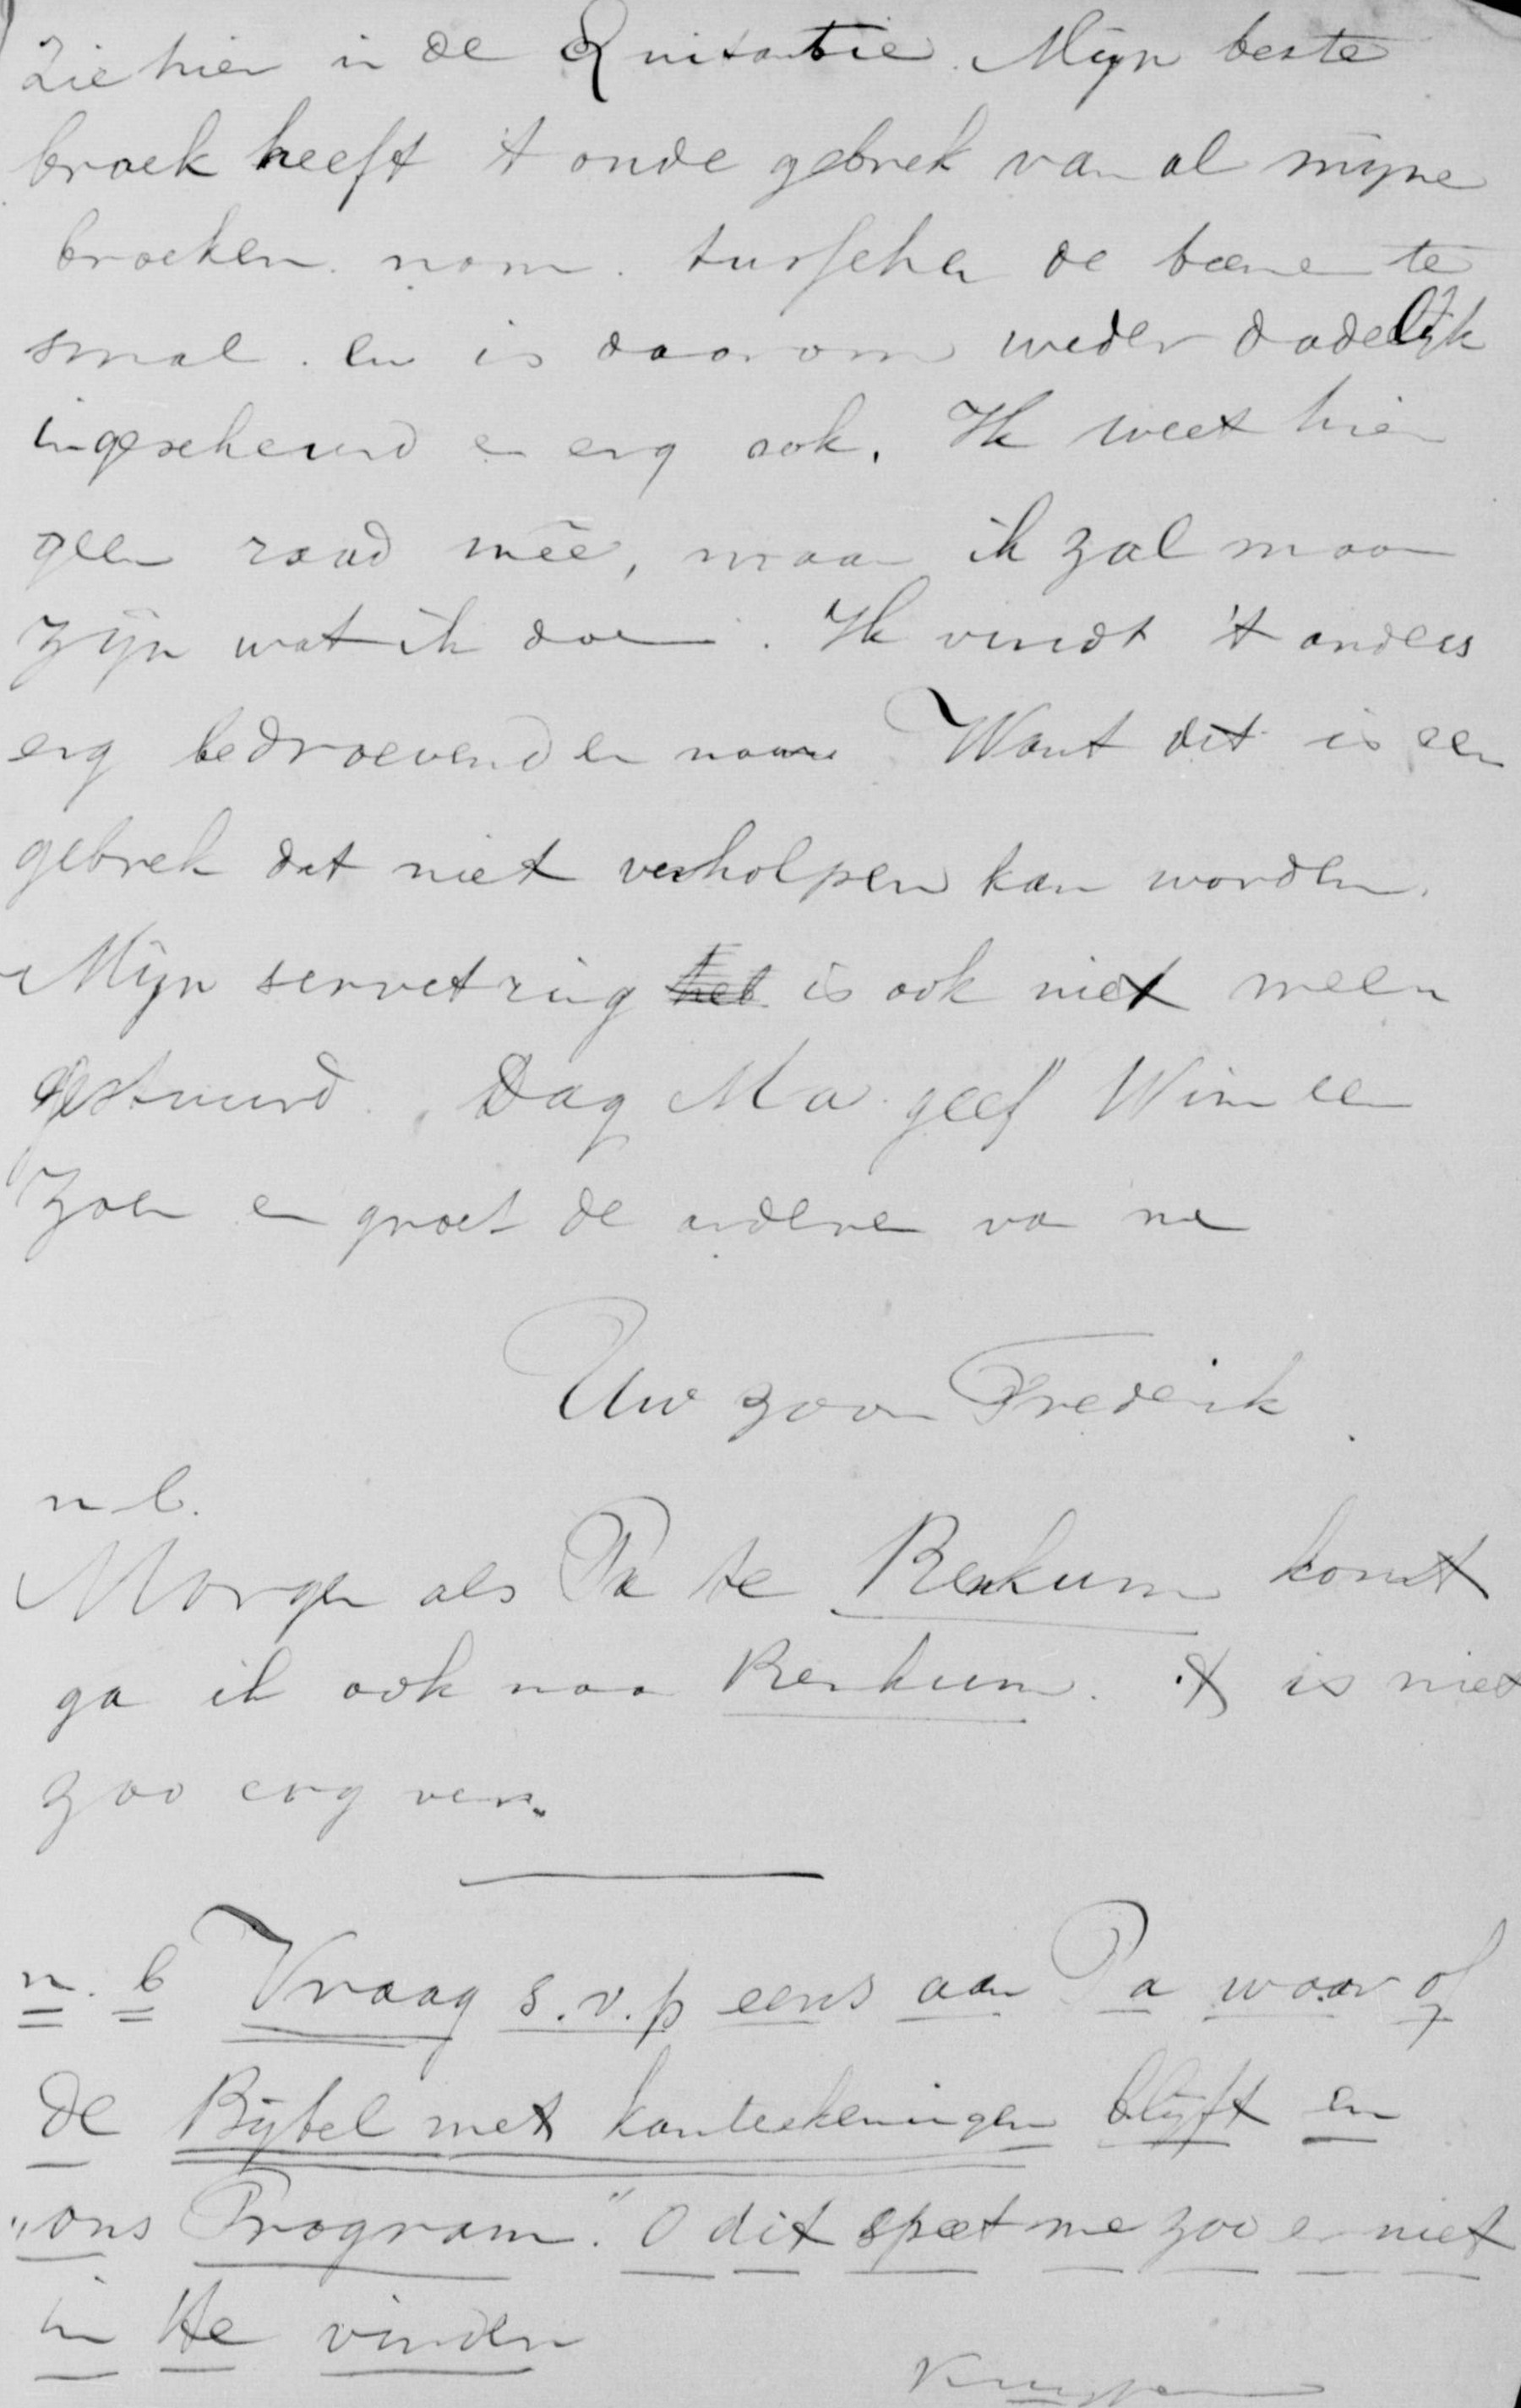 Zie hier in de Quitantie. Mijn beste
broek heeft 't oude gebrek van al mijne
broeken. nom. tusschen de beene te
smal. en is daarom weder dadelijk
ingescheurd en erg ook. Ik weet hier
geen raad mêe, maar ik zal maar
zijn wat ik doe. Ik vindt 't anders
erg bedroevend en naar. Want dit is een
gebrek dat niet verholpen kan worden.
Mijn servetring heb is ook niet meen
gestuurd. Dag Ma geef Wim een
zoen en groet de andere van me
Uw zoon Frederik.
n b.
Morgen als Pa te Renkum komt
ga ik ook naar Renkum. 't is niet
zoo erg ver.
n. b Vraag s.v.p eens aan Pa waar of
de Bijbel met kantteekeningen blijft en
"ons Program." O dit spæt me zoo er niet
in te vinden